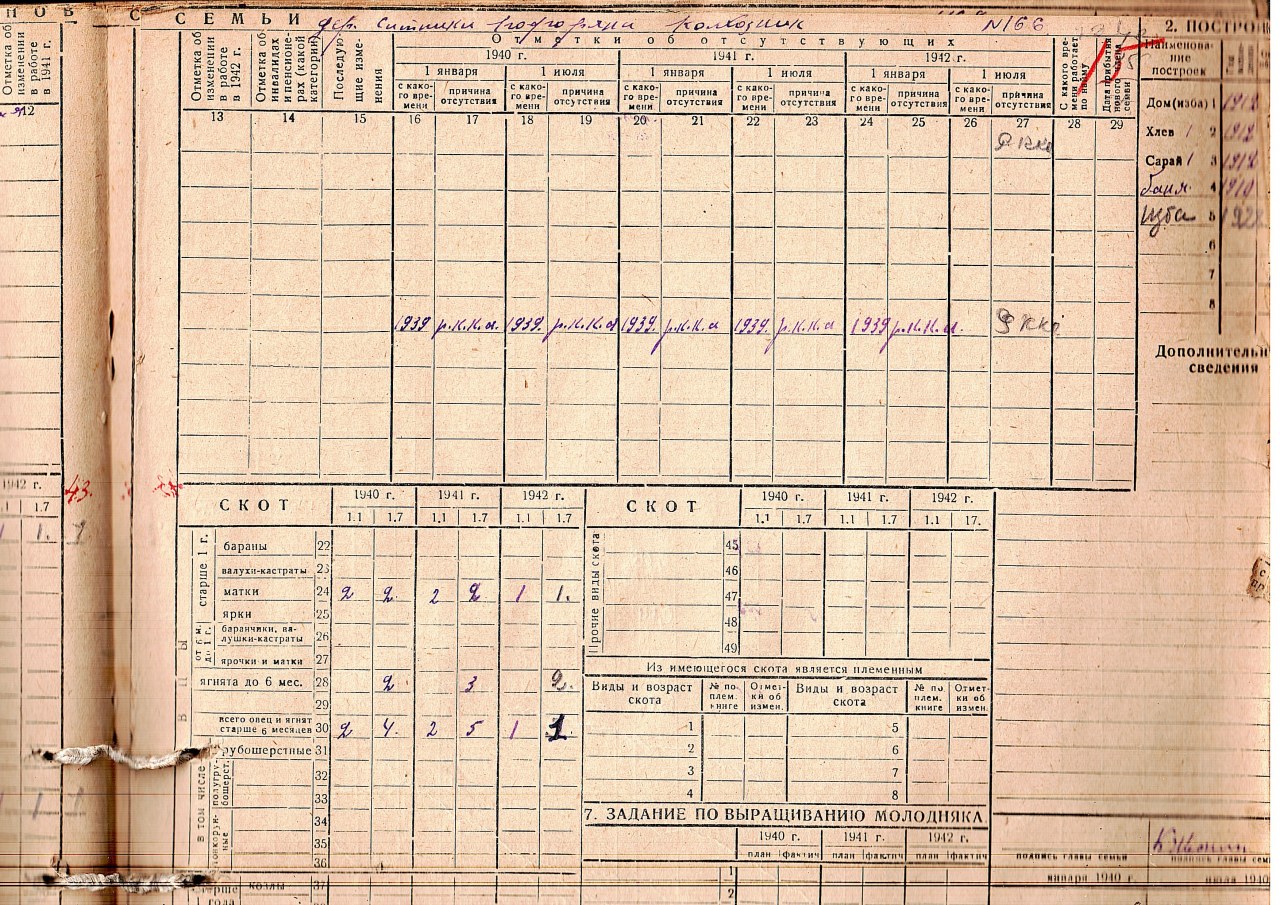 НОВ С СЕМЬИ дер. Ситники колхозник N166
2. ПОСТРОЙ
Отметка об изменении в работе в 1941 г.
Отметка об изменении в работе в 1942 г.
Отметка об инвалидах и пенсионерах (какой категории)
Последующие изменения
Отметки об отсутствующих
1940 г. 1941 г. 1942 г.
1 января 1 июля 1 января 1 июля 1 января 1 июля
с какого времени причина отсутствия с какого времени причина отсутствия с какого времени причина отсутствия с какого времени причина отсутствия с какого времени причина отсутствия с какого времени причина отсутствия
С какого времени работает по найму
Дата прибытия нового члена семьи
Наименование построек
12 13 14 15 16 17 18 19 20 21 22 23 24 25 26 27 28 29
Дом (изба) 1 1912
Хлев / 2 1912
Сарай / 3 1912
баня 4 1910
Изба 5
6
7
8
РККа
1939 р.к.к.а. 1939. р.к.к.а 1939. р.к.к.а 1939. р.к.к.а 1939 р.к.к.а. РККа
Дополнительн
сведения
1942 г.
.1 1.7
43.
1. 1
СКОТ 1940 г. 1941 г. 1942 г.
1.1 1.7 1.1 1.7 1.1 1.7
старше 1 г.
бараны 22
валухи-кастраты 23
матки 24 2 2. 2 2. 1 1.
ярки 25
от 6 м. до 1 г.
баранчики, валушки-кастраты 26
ярочки и матки 27
ягнята до 6 мес. 28 2. 3 2.
29
всего овец и ягнят старше 6 месяцев 30 2 4. 2 5 1 1.
в том числе
рубошерстные 31
полугрубошерст. 32
33
тонкорунные 34
35
36
старше 1 года
козлы 37
СКОТ 1940 г. 1941 г. 1942 г.
1.1 1.7 1.1 1.7 1.1 17.
Прочие виды скота
45
46
47
48
49
Из имеющегося скота является племенным
Виды и возраст скота № по плем. книге Отметки об измен. Виды и возраст скота № по плем. книге Отметки об измен.
1 5
2 6
3 7
4 8
7. ЗАДАНИЕ ПО ВЫРАЩИВАНИЮ МОЛОДНЯКА
1940 г. 1941 г. 1942 г.
план фактич план фактич план фактич
1
2
подпись главы семьи подпись главы семь
января 1940 г. июля 1940